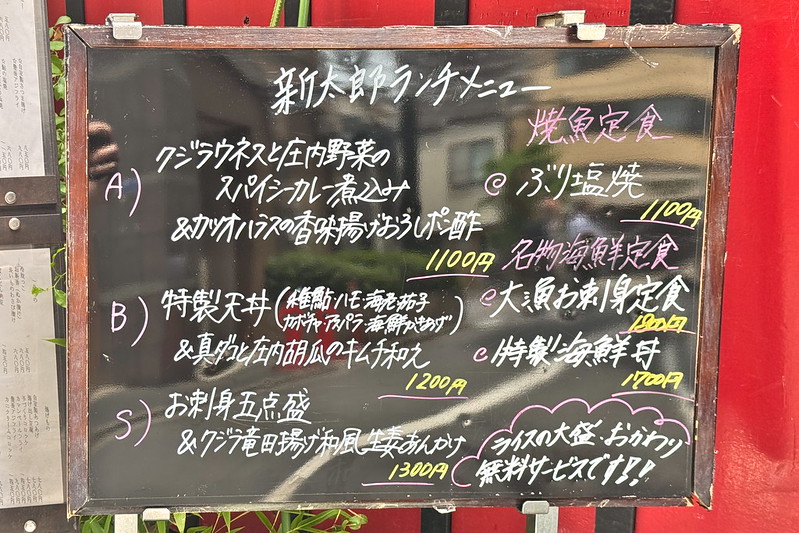 新太郎ランチメニュー
A) クジラウネスと庄内野菜の
スパイシーカレー煮込み
&カツオハラスの香味揚げおろしポン酢
1100円
B) 特製天丼(稚鮎ハモ海老茄子
カボチャアスパラ海鮮かきあげ)
&真ダコと庄内胡瓜のキムチ和え
1200円
S) お刺身五点盛
&クジラ竜田揚げ和風生姜あんかけ
1300円
焼魚定食
@ ぶり塩焼
1100円
名物海鮮定食
@大漁お刺身定食
1900円
@特製海鮮丼
1700円
ライスの大盛・おかわり
無料サービスです!!